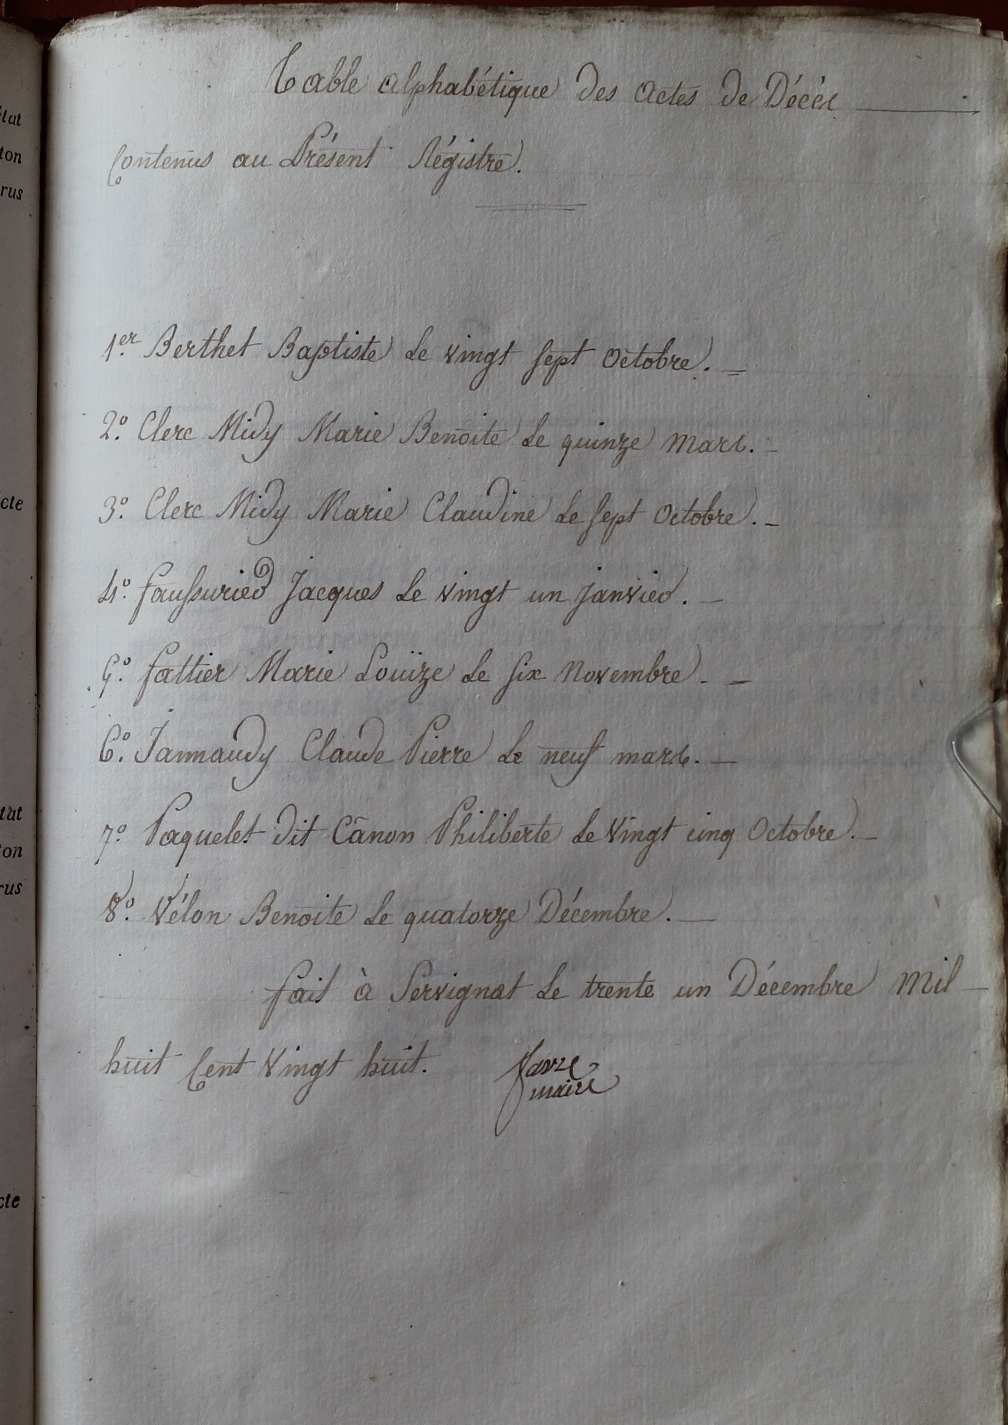 Table alphabétique des actes de Décès
Contenus au Présent Régistre.
1er. Berthet Baptiste le vingt sept octobre.
2o. Clerc Midy Marie Benoite le quinze mars.
3o. Clerc Midy Marie Claudine le sept octobre.
4o. faussurier Jacques le vingt un janvier.
5o. fattier Marie Louïze le six Novembre.
6o. Janmaudy Claude Pierre le neuf mars.
7o. Paquelet dit Cânon Philiberte le vingt cinq Octobre.
8o. Vélon Benoite le quatorze Décembre.
fait à Servignat le trente un Décembre Mil
huit Cent vingt huit.
favre
maire
tat
ton
rus
cte
tat
ton
rus
cte